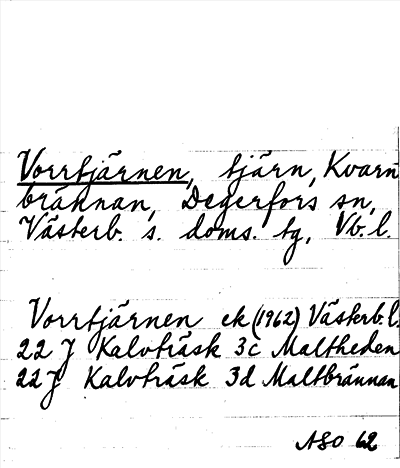 Vorrtjärnen, tjärn, Kvarn
bräknan, Degerfors sn,
Västerb. s. doms. tg, Vb. l.
Vorrtjärnen ek (1962) Västerb. l.
22 J Kalvträsk 3c Maltheden
22 J Kalvträsk 3d Maltbrännan
ASO 62